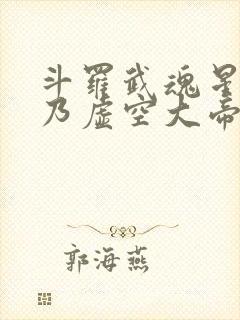 斗羅武魂星
乃虛空大帝
郭海燕